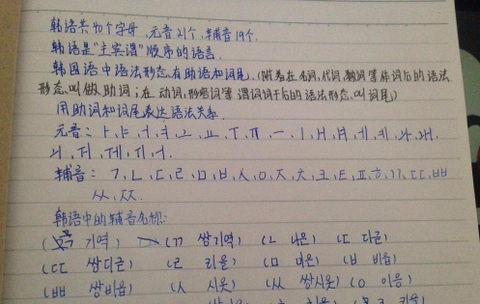 韩语共40个字母,元音21个,辅音19个.
韩语是"主宾谓"顺序的语言.
韩国语中语法形态有助语和词尾.(附着在名词,代词,数词等体词后的语法
形态,叫做助词;在动词,形容词等谓词词干后的语法形态,叫词尾.)
用助词和词尾表达语法关系.
元音: ㅏ,ㅑ,ㅓ,ㅕ,ㅗ,ㅛ,ㅜ,ㅠ,ㅡ,ㅣ,ㅐ,ㅒ,ㅔ,ㅖ,ㅘ,ㅙ,
ㅚ,ㅝ,ㅞ,ㅟ,ㅢ.
辅音: ㄱ,ㄴ,ㄷ,ㄹ,ㅁ,ㅂ,ㅅ,ㅇ,ㅈ,ㅊ,ㅋ,ㅌ,ㅍ,ㅎ,ㄲ,ㄸ,ㅃ
ㅆ,ㅉ.
韩语中的辅音名称:
( 기역) (ㄲ 쌍기역) (ㄴ 니은) (ㄷ 디귿)
(ㄸ 쌍디귿) (ㄹ 리을) (ㅁ 미음) (ㅂ 비읍)
(ㅃ 쌍비읍) (ㅅ 시옷) (ㅆ 쌍시옷) (ㅇ 이응)